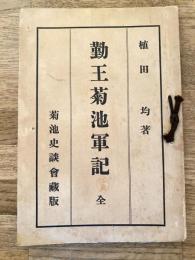 植田均著
勤王菊池軍記 全
菊池史談會藏版